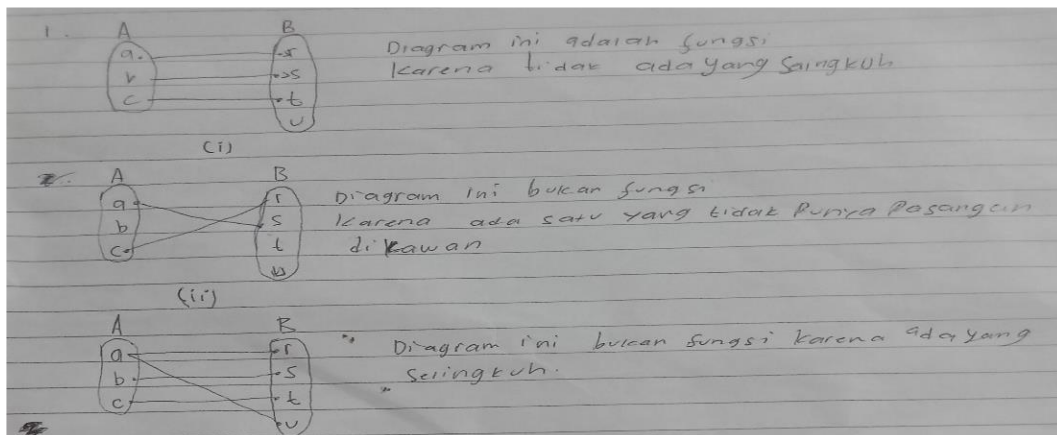 1. A B
a r Diagram ini adalah fungsi
b s Karena tidak ada yang Saingkuh
c t
u
(i)
A B
a r Diagram ini bukan fungsi
b s Karena ada satu yang tidak Punya Pasangan
c t dikawan
u
(ii)
A B
a r Diagram ini bukan fungsi karena ada yang
b s Selingkuh.
c t
u